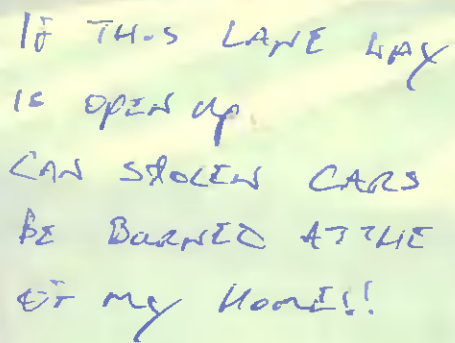 IF THIS LANE WAY
IS OPEN UP
CAN STOLEN CARS
BE BURNED AT THE
OF MY HOME!!